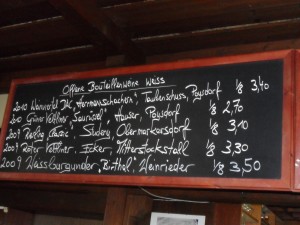 Offene Bouteillenweine weiss
2010 Weinviertel DAC, "Hermannschachern", Taubenschuss, Poysdorf 1/8 3,40
2010 Grüner Veltliner, "Saurüssel", Hauser, Poysdorf 1/8 2,70
2009 Riesling "Classic", Studeny, Obermarkersdorf 1/8 3,10
2009 Roter Veltliner, Ecker, Mitterstockstall 1/8 3,30
2009 Weissburgunder, "Birthal", Weinrieder 1/8 3,50